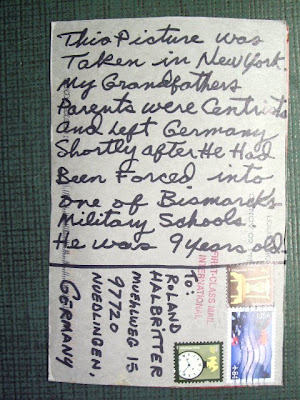 This Picture was
Taken in New York.
My Grandfathers
Parents were Centrists
and Left Germany
Shortly after He Had
Been Forced into
one of Bismarck's
Military Schools
He was 9 years old!
To:
ROLAND
HALBRITTER
MUEHLWEG 15
97720
NUEDLINGEN,
GERMANY
FIRST-CLASS MAIL
INTERNATIONAL
USA